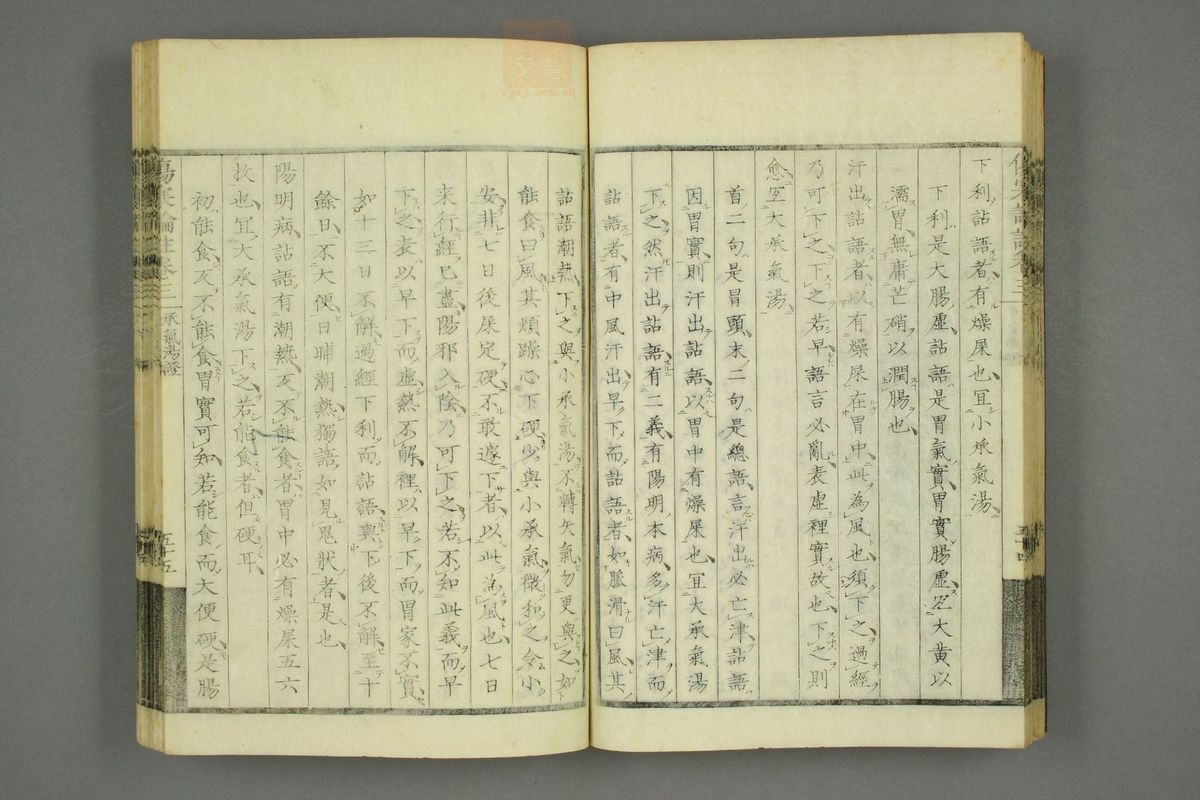 下利譫語者有燥屎也宜小承氣湯
下利是大腸虛譫語是胃氣實胃實腸虛宜大黃以
濡胃無庸芒硝以潤腸也
汗出譫語者以有燥屎在胃中此為風也須下之過經
乃可下之下之若早語言必亂表虛裡實故也下之則
愈宜大承氣湯
首二句是冒頭末二句是總語言汗出必亡津譫語
因胃實則汗出譫語以胃中有燥屎也宜大承氣湯
下之然汗出譫語有二義有陽明本病多汗亡津而
譫語者有中風汗出早下而譫語者如脈滑曰風其
譫語潮熱下之與小承氣湯不轉矢氣勿更與之如
能食曰風其煩躁心下硬少與小承氣微和之令小
安非七日後屎定硬不敢遽下者以此為風也七日
来行經已盡陽邪入陰乃可下之若不知此義而早
下之表以早下而虛熱不解裡以早下而胃家不實
如十三日不解過經下利而譫語與下後不解至十
餘日不大便日晡潮熱獨語如見鬼狀者是也
陽明病譫語有潮熱反不能食者胃中必有燥屎五六
枚也宜大承氣湯下之若能食者但硬耳
初能食反不能食胃實可知若能食而大便硬是腸
卷三
承氣湯證
五十五